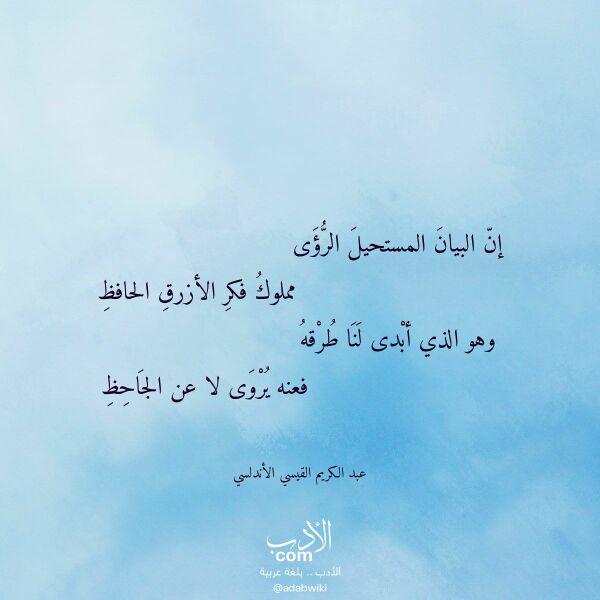 إنّ البيانَ المستحيلَ الرُّؤَى
مملوكُ فكرِ الأزرقِ الحافظِ
وهو الذي أبْدى لَنَا طُرْقهُ
فعنه يُرْوَى لا عن الجَاحِظِ
عبد الكريم القيسي الأندلسي
الأدب
com
الأدب .. بلغة عربية
@adabwiki